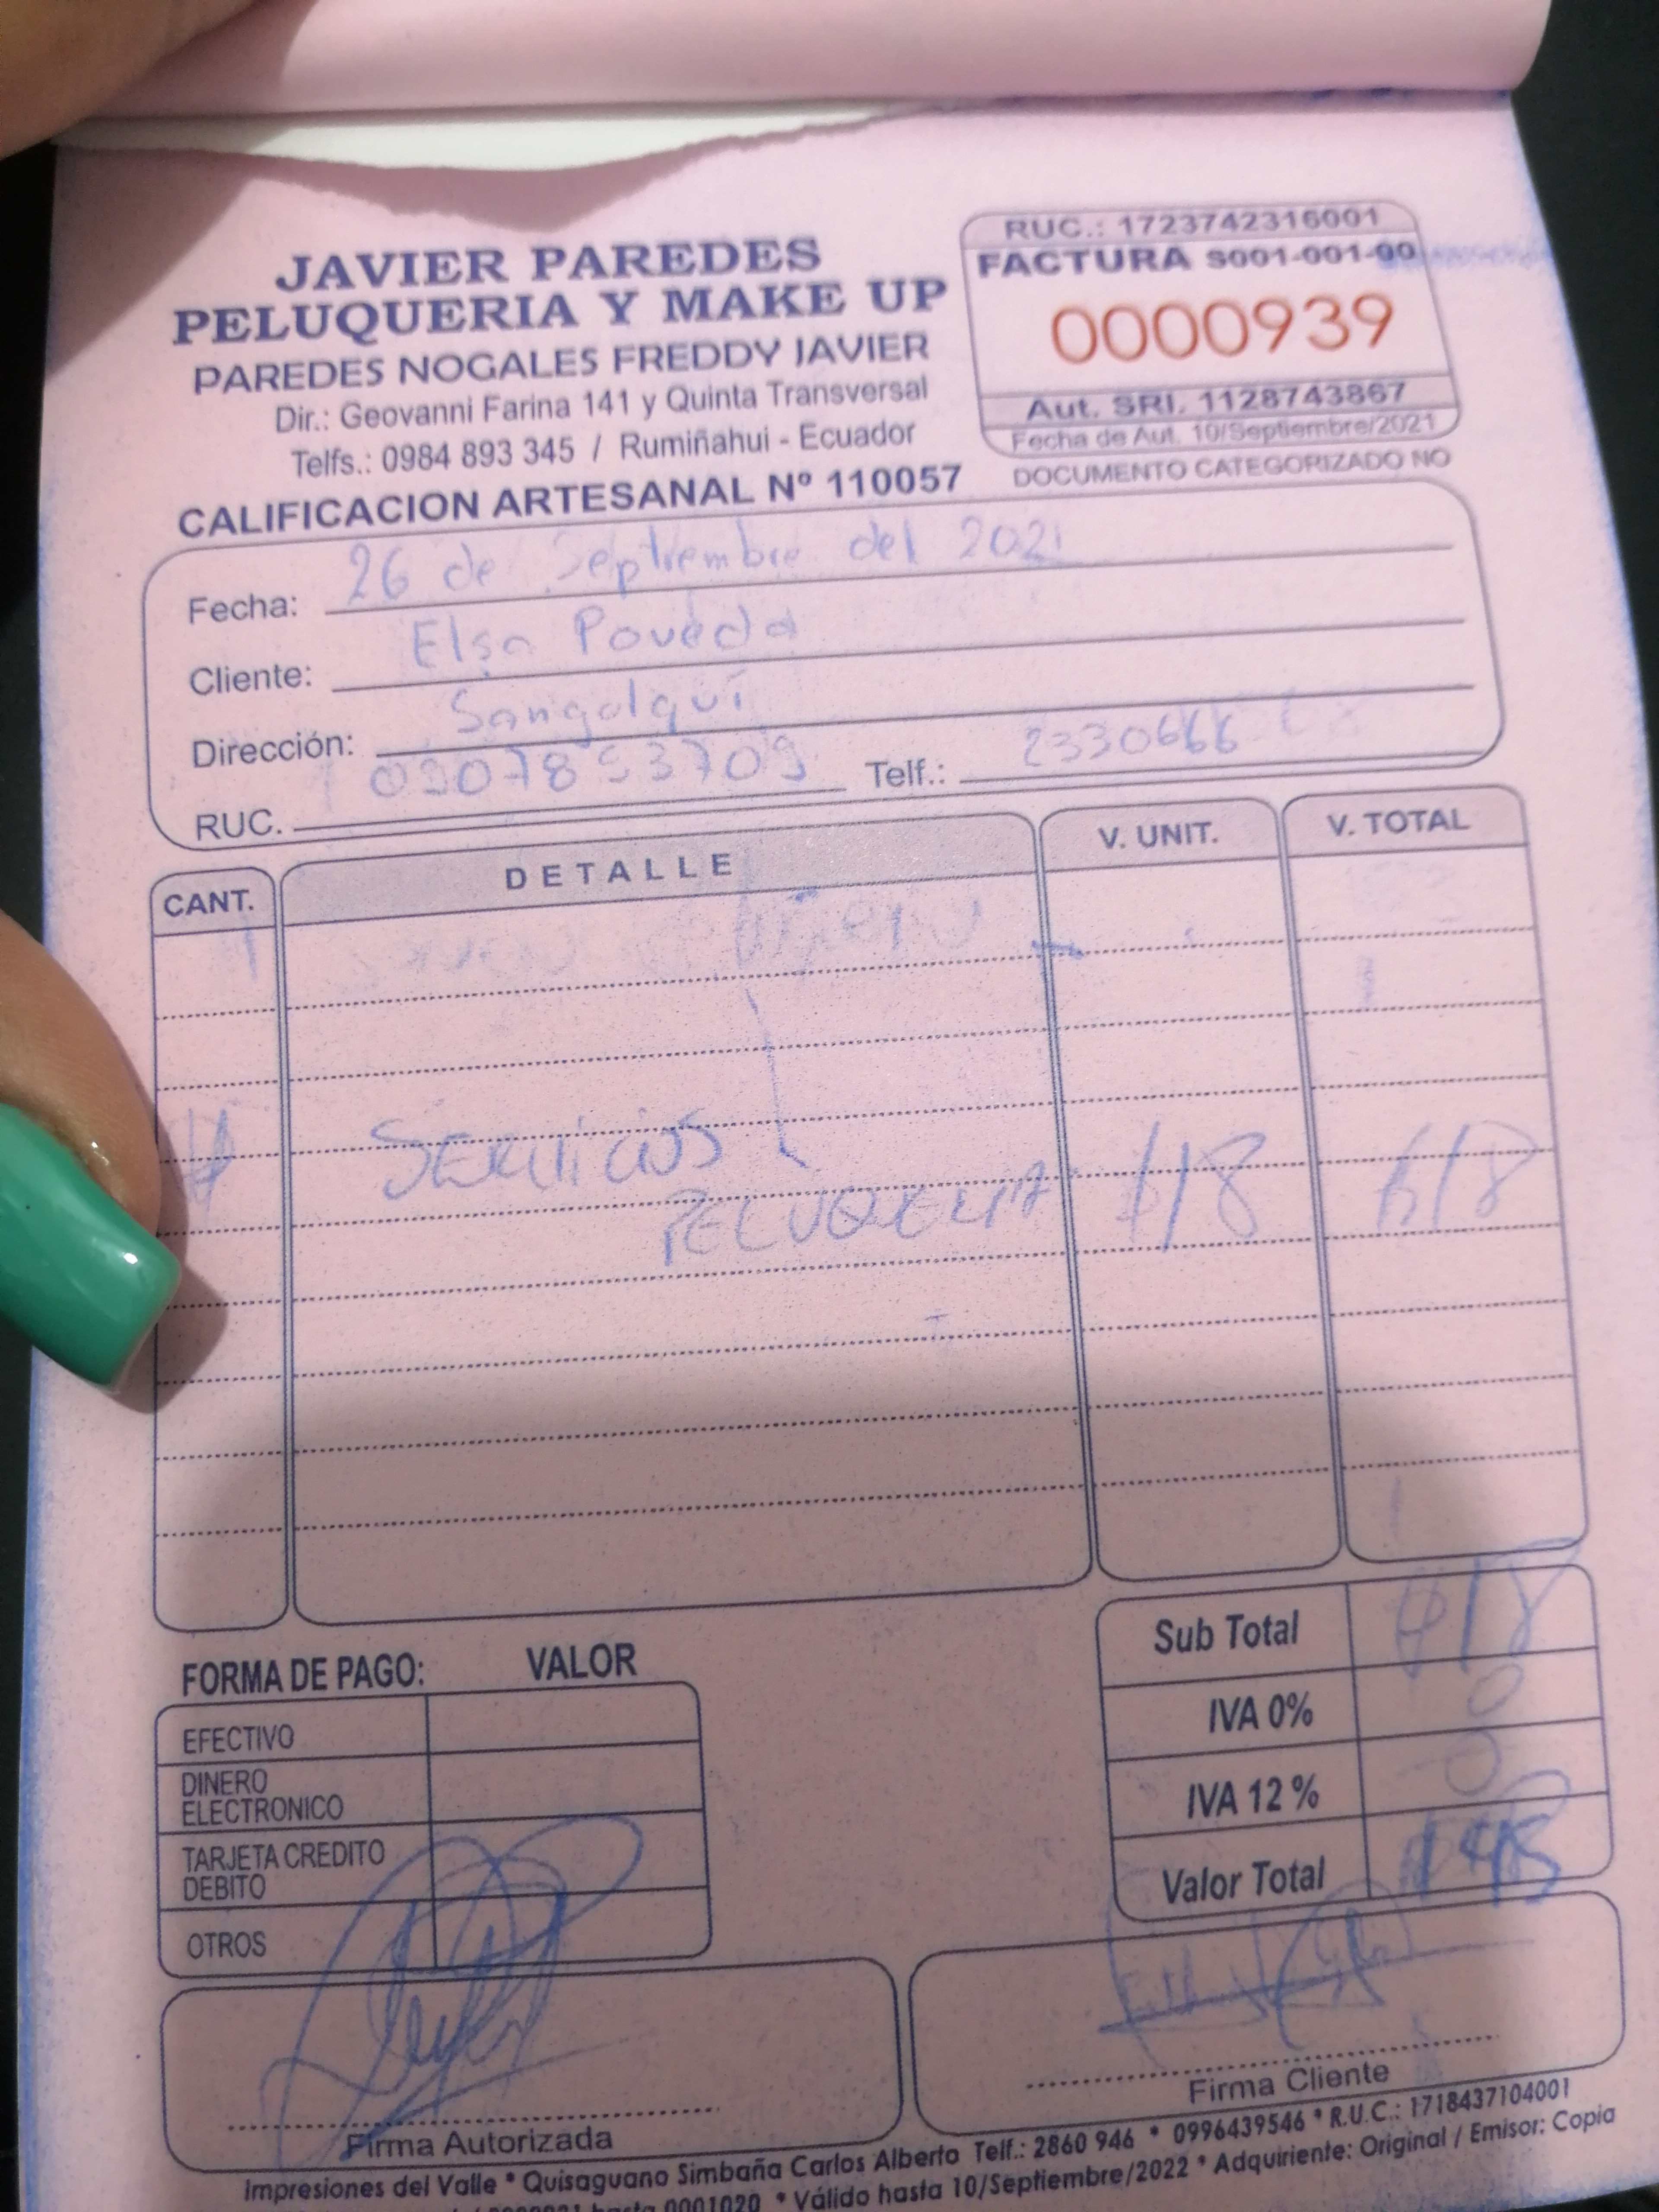 JAVIER PAREDES
PELUQUERIA Y MAKE UP
PAREDES NOGALES FREDDY JAVIER
Dir.: Geovanni Farina 141 y Quinta Transversal
Telfs.: 0984 893 345 / Rumiñahui - Ecuador
CALIFICACION ARTESANAL Nº 110057
RUC.: 1723742316001
FACTURA S001-001-00
0000939
Aut. SRI. 1128743867
Fecha de Aut. 10/Septiembre/2021
DOCUMENTO CATEGORIZADO NO
Fecha: 26 de Septiembre del 2021
Cliente: Elsa Poveda
Dirección: Sangolquí
RUC. Telf.: 2330666
CANT. DETALLE V. UNIT. V. TOTAL
SERVICIOS
PELUQUERIA $18 $18
Sub Total $18
IVA 0% 0
IVA 12 % 0
Valor Total
FORMA DE PAGO: VALOR
EFECTIVO
DINERO
ELECTRONICO
TARJETA CREDITO
DEBITO
OTROS
Firma Autorizada
Firma Cliente
Impresiones del Valle * Quisaguano Simbaña Carlos Alberto Telf.: 2860 946 * 0996439546 * R.U.C.: 1718437104001
hasta 0001020 * Válido hasta 10/Septiembre/2022 * Adquiriente: Original / Emisor: Copia